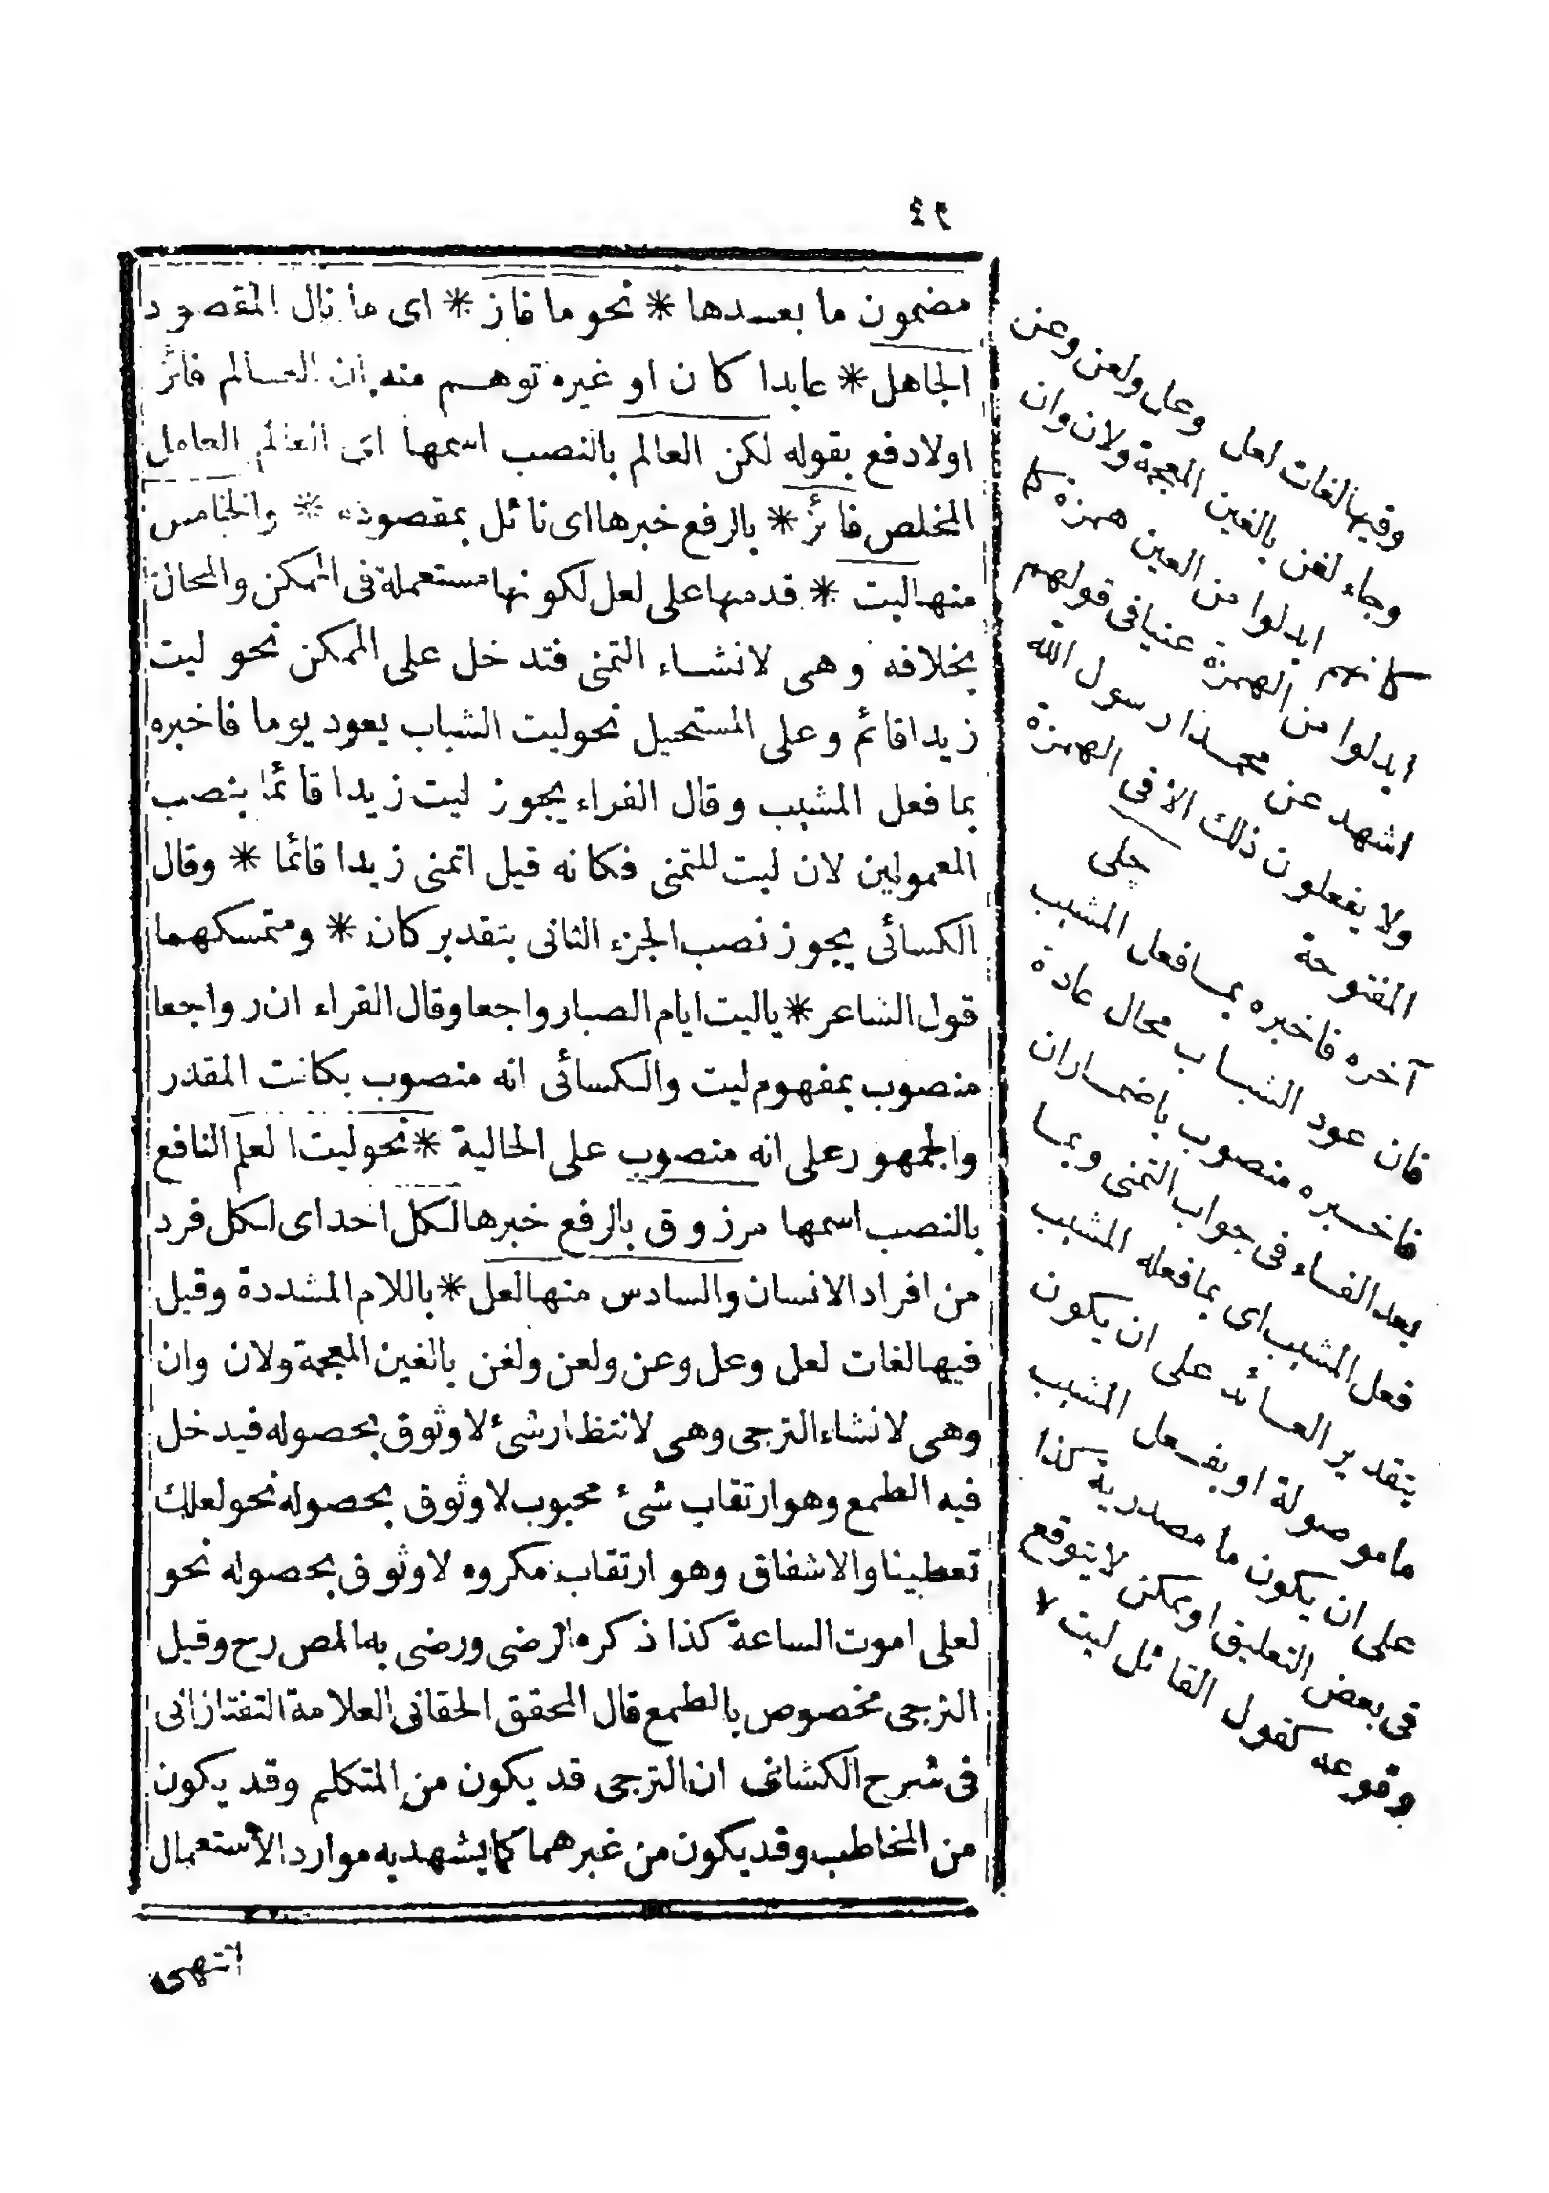 ٤٢
مضمون ما بعدها * نحو ما فاز * اى ما نال المقصود
الجاهل * عابدا كان او غيره توهم منه ان العالم فائز
اولا دفع بقوله لكن العالم بالنصب اسمها اى العالم العامل
المخلص فائز * بالرفع خبرها اى نائل بمقصوده * والخامس
منها ليت * قدمها على لعل لكونها مستعملة فى الممكن والمحال
بخلافه وهى لانشاء التمنى فتدخل على الممكن نحو ليت
زيدا قائم وعلى المستحيل نحو ليت الشباب يعود يوما فاخبره
بما فعل المشيب وقال الفراء يجوز ليت زيدا قائما بنصب
المعمولين لان ليت للتمنى فكانه قيل اتمنى زيدا قائما * وقال
الكسائى يجوز نصب الجزء الثانى بتقدير كان * ومتمسكهما
قول الشاعر * ياليت ايام الصبا رواجعا وقال الفراء ان رواجعا
منصوب بمفهوم ليت والكسائى انه منصوب بكانت المقدر
والجمهور على انه منصوب على الحالية * نحو ليت العلم النافع
بالنصب اسمها مرزوق بالرفع خبرها لكل احد اى لكل فرد
من افراد الانسان والسادس منها لعل * باللام المشددة وقيل
فيها لغات لعل وعل وعن ولعن ولغن بالغين المعجمة ولان وان
وهى لانشاء الترجى وهى لانتظار شئ لا وثوق بحصوله فيدخل
فيه الطمع وهو ارتقاب شئ محبوب لا وثوق بحصوله نحو لعلك
تعطينا والاشفاق وهو ارتقاب مكروه لا وثوق بحصوله نحو
لعلى اموت الساعة كذا ذكره الرضى ورضى به المص رح وقيل
الترجى مخصوص بالطمع قال المحقق الحقانى العلامة التفتازانى
فى شرح الكشاف ان الترجى قد يكون من المتكلم وقد يكون
من المخاطب وقد يكون من غيرهما كما يشهد به موارد الاستعمال
انتهى
وفيها لغات لعل وعل ولعن وعن
وجاء لغن بالغين المعجمة ولان وان
كانهم ابدلوا من العين همزة كما
ابدلوا من الهمزة عنيا فى قولهم
اشهد عن محمدا رسول الله
ولا يفعلون ذلك الا فى الهمزة
المفتوحة چلى
آخره فاخبره بما فعل المشيب
فان عود الشباب محال عادة
فاخبره منصوب باضمار ان
بعد الفاء فى جواب التمنى وبما
فعل المشيب اى بما فعله المشيب
بتقدير العائد على ان يكون
ما موصولة او بفعل المشيب
على ان يكون ما مصدرية كذا
فى بعض التعليق او ممكن لا يتوقع
وقوعه كقول القائل ليت لا